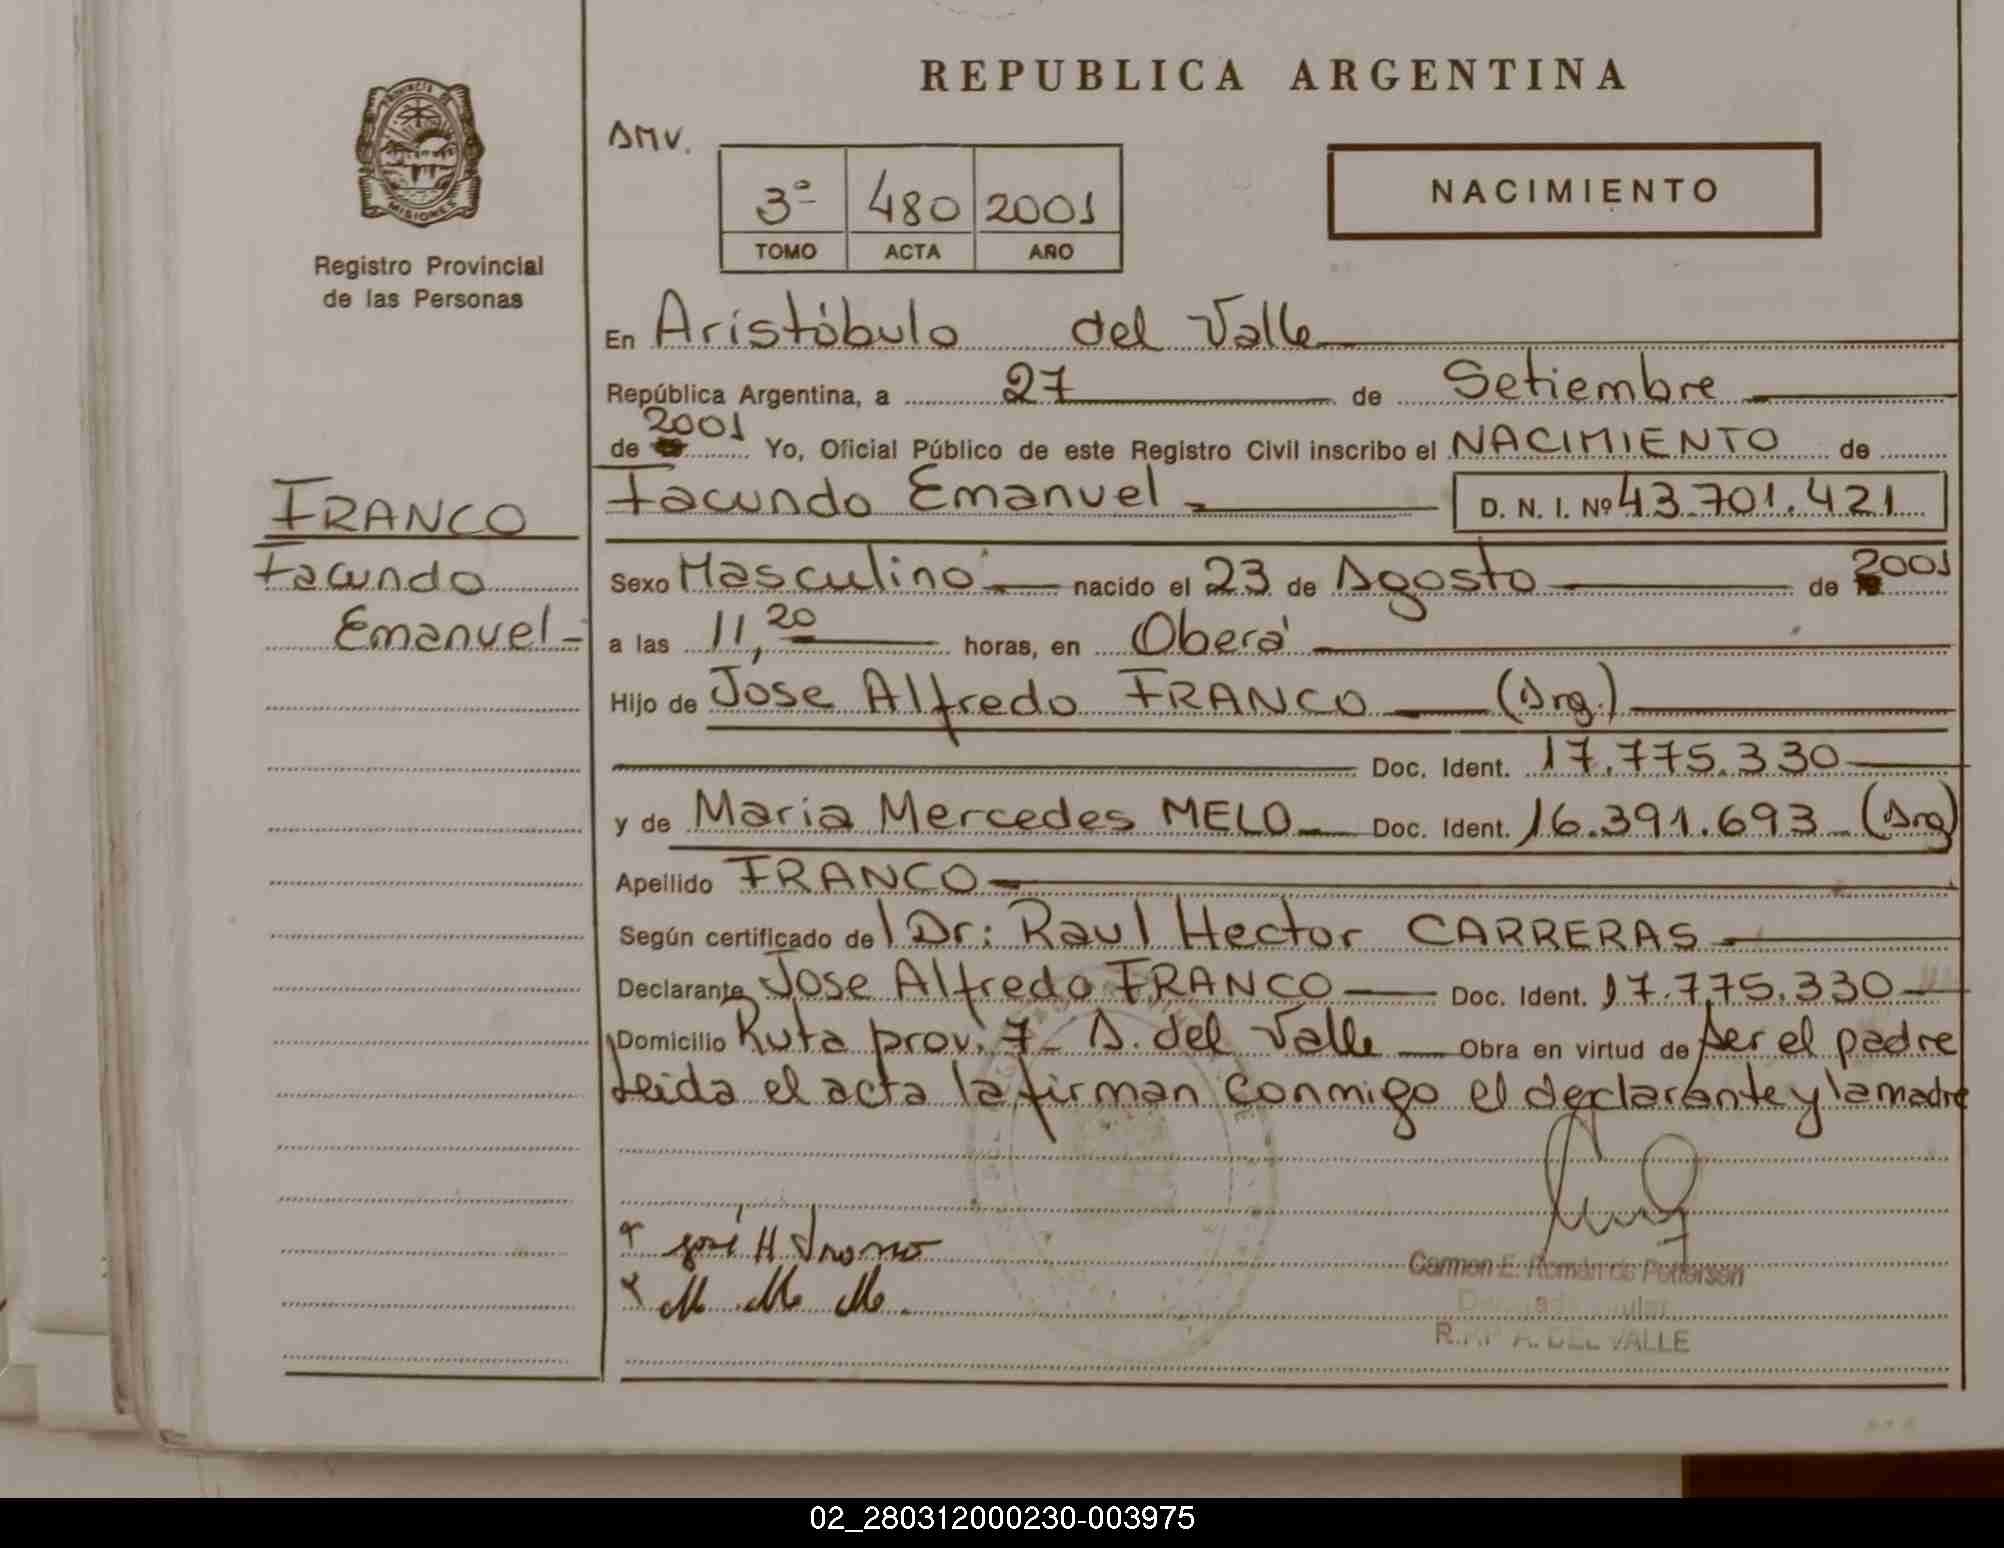 REPUBLICA ARGENTINA
PROVINCIA DE MISIONES
Registro Provincial
de las Personas
AMV.
3ª 480 2001
TOMO ACTA AÑO
NACIMIENTO
En Aristóbulo del Valle
República Argentina, a 27 de Setiembre
de 2001 Yo, Oficial Público de este Registro Civil inscribo el NACIMIENTO de
FRANCO
Facundo
Emanuel
Facundo Emanuel D. N. I. Nº 43.701.421
Sexo Masculino nacido el 23 de Agosto de 2001
a las 11,20 horas, en Oberá
Hijo de Jose Alfredo FRANCO (Arg.)
Doc. Ident. 17.775.330
y de Maria Mercedes MELO Doc. Ident. 16.391.693 (Arg)
Apellido FRANCO
Según certificado de l Dr: Raul Hector CARRERAS
Declarante Jose Alfredo FRANCO Doc. Ident. 17.775.330
Domicilio Ruta prov. 7 - A. del Valle Obra en virtud de ser el padre
Leida el acta la firman conmigo el declarante y la madre
Carmen E. Román de
R.P.P A. DEL VALLE
02_280312000230-003975